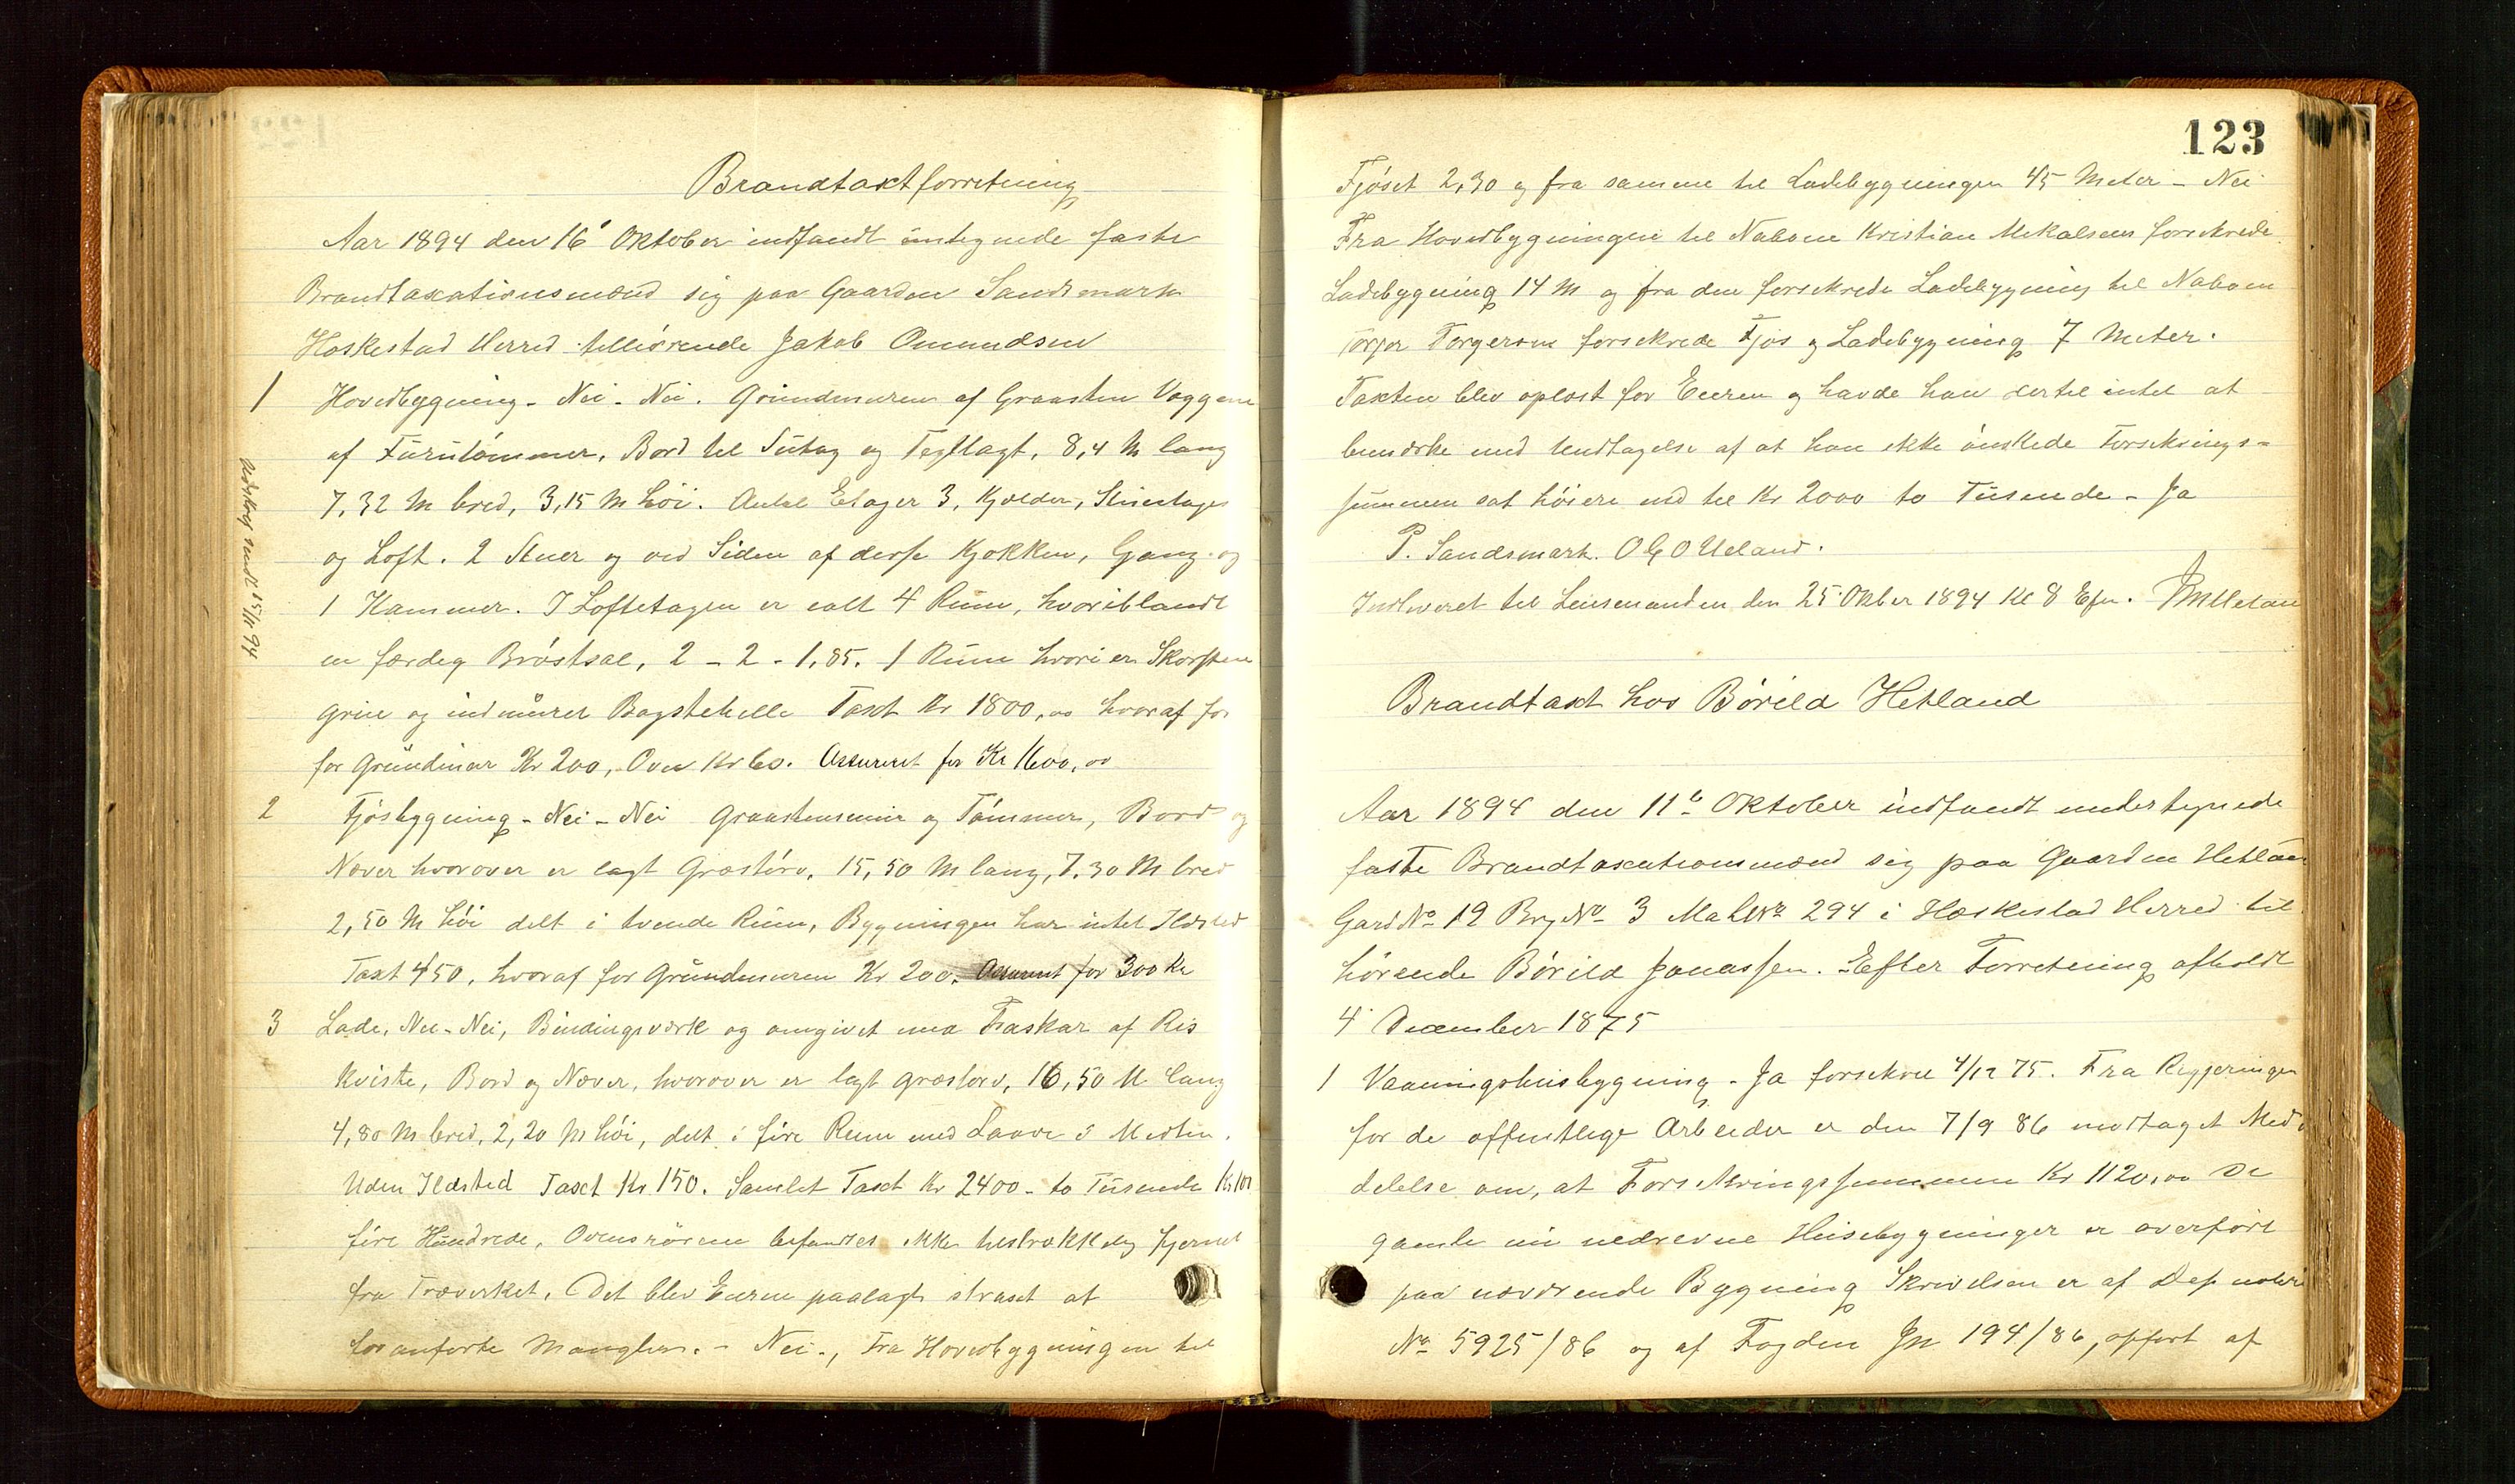 Brandtaxtforretning
Aar 1894 den 16' Oktober indfandt undtegnede faste
Brandtaxationsmænd sig paa Gaarden Sandsmark
Heskestad Herred tilhørende Jakob Omundsen
1 Hovedbygning - Nei - Nei. Grundmuren af Graasten Væggene
af Furutømmer. Bord til Sutag og Teglagt, 8,4 M lang
7,32 M bred, 3,15 M høi. Antal Etager 3, Kjelder, Stuetage
og Loft. 2 Stuer og ved Siden af disse Kjøkken, Gang og
1 Kammer. I Loftetagen er ialt 4 Rum, hvoriblandt
en færdig Brøstsal, 2 - 2 - 1,85. 1 Rum hvori er Skorsten
Grue og indmuret Bagstehelle Taxt Kr 1800,00 hvoraf for
for Grundmur Kr 200, Ovn Kr 60. Assureret for Kr 1600,00
2 Fjøsbygning - Nei - Nei Graastensmur og Tømmer, Bord og
Næver hvorover er lagt Græstørv, 15,50 M lang, 7,30 M bred
2,50 M høi delt i tvende Rum, Bygningen har intet Ildsted
Taxt 450, hvoraf for Grundmuren Kr 200. Assureret for 300 Kr
3 Lade, Nei - Nei, Bindingsværk og omgivet med Faskar af Ris
Kviste, Bord og Næver, hvorover er lagt Græstørv, 16,50 M lang
4,80 M bred, 2,20 M høi, delt i fire Rum med Laave i Midten.
Uden Ildsted Taxt Kr 150. Samlet Taxt Kr 2400 - to Tusende Kr 100
fire Hundrede, Ovnsrørene befandtes ikke tilstrækkelig fjernet
fra Træverket. Det blev Eieren paalagt straxt at
foranførte Mangler. - Nei -, Fra Hovedbygningen til
Udskrift sendt 15/11 94
123
Fjøset 2,30 og fra samme til Ladebygningen 45 Meter - Nei
Fra Hovedbygningen til Naboen Kristian Mikalsens forsikrede
Ladebygning 14 M og fra den forsikrede Ladebygning til Naboen
Torger Torgersens forsikrede Fjøs og Ladebygning 7 Meter.
Taxten blev oplæst for Eieren og havde han dertil intet at
bemærke med Undtagelse af at han ikke ønskede Forsikrings-
summen sat høiere end til Kr 2000 to Tusende - Ja
P. Sandsmark. O G O Ueland.
Indleveret til Lensmanden den 25 Oktber 1894 Kl 8 Efm.
Brandtaxt hos Børild Hetland
Aar 1894 den 11te Oktober indfandt undertegnede
faste Brandtaxationsmænd sig paa Gaarden Hetland
Gard No 19 Brg No 3 Matr No 294 i Heskestad Herred til
hørende Børild Jonassen. Efter Forretning afholdt
4 December 1875
1 Vaaningshusbygning - Ja forsikret 4/12 75. Fra Regjeringen
for de offentlige Arbeider er den 7/9 86 modtaget Med
delelse om, at Forsikringssummen Kr 1120,00 De
gamle nu nedrevne Husebygninger er overført
paa nærværende Bygning Skrivelsen er af Dep
No 5925/86 og af Fogden Jn 194/86, opført af